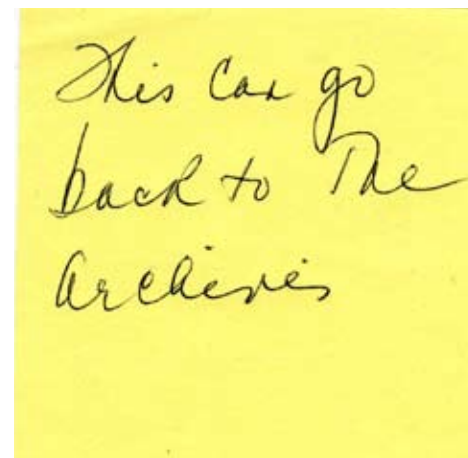 This can go
back to The
archives